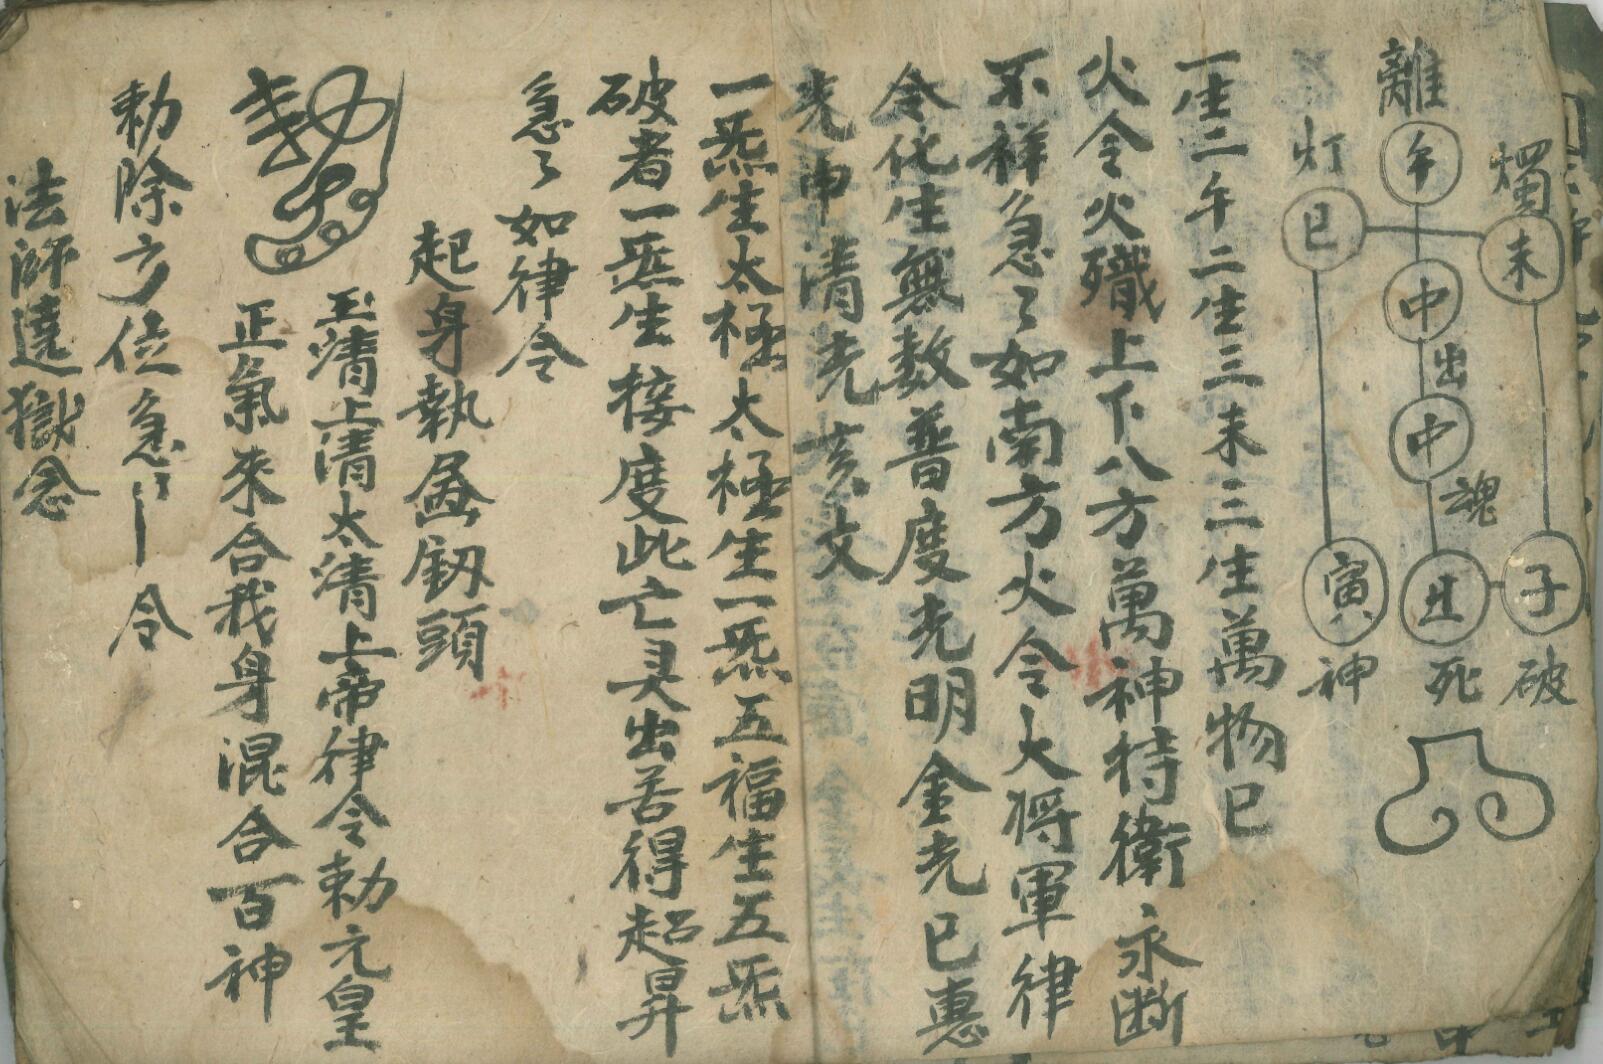 離 午 中 出 中 魂 丑 死
燭 未 子 破
灯 巳 寅 神
一生二午二生三未三生萬物巳
火令火殲上下八方萬神侍衛永断
不祥急々如南方火令大将軍律
令化生無数普度光明金光巳惠
光中清光
一炁生太極太極生一炁五福生五炁
破者一炁生接度此亡灵出苦得超昇
急々如律令
起身執 釼頭
玉清上清太清上帝律令勅元皇
正氣來合我身混合百神
勅除方位急 令
法師達獄念